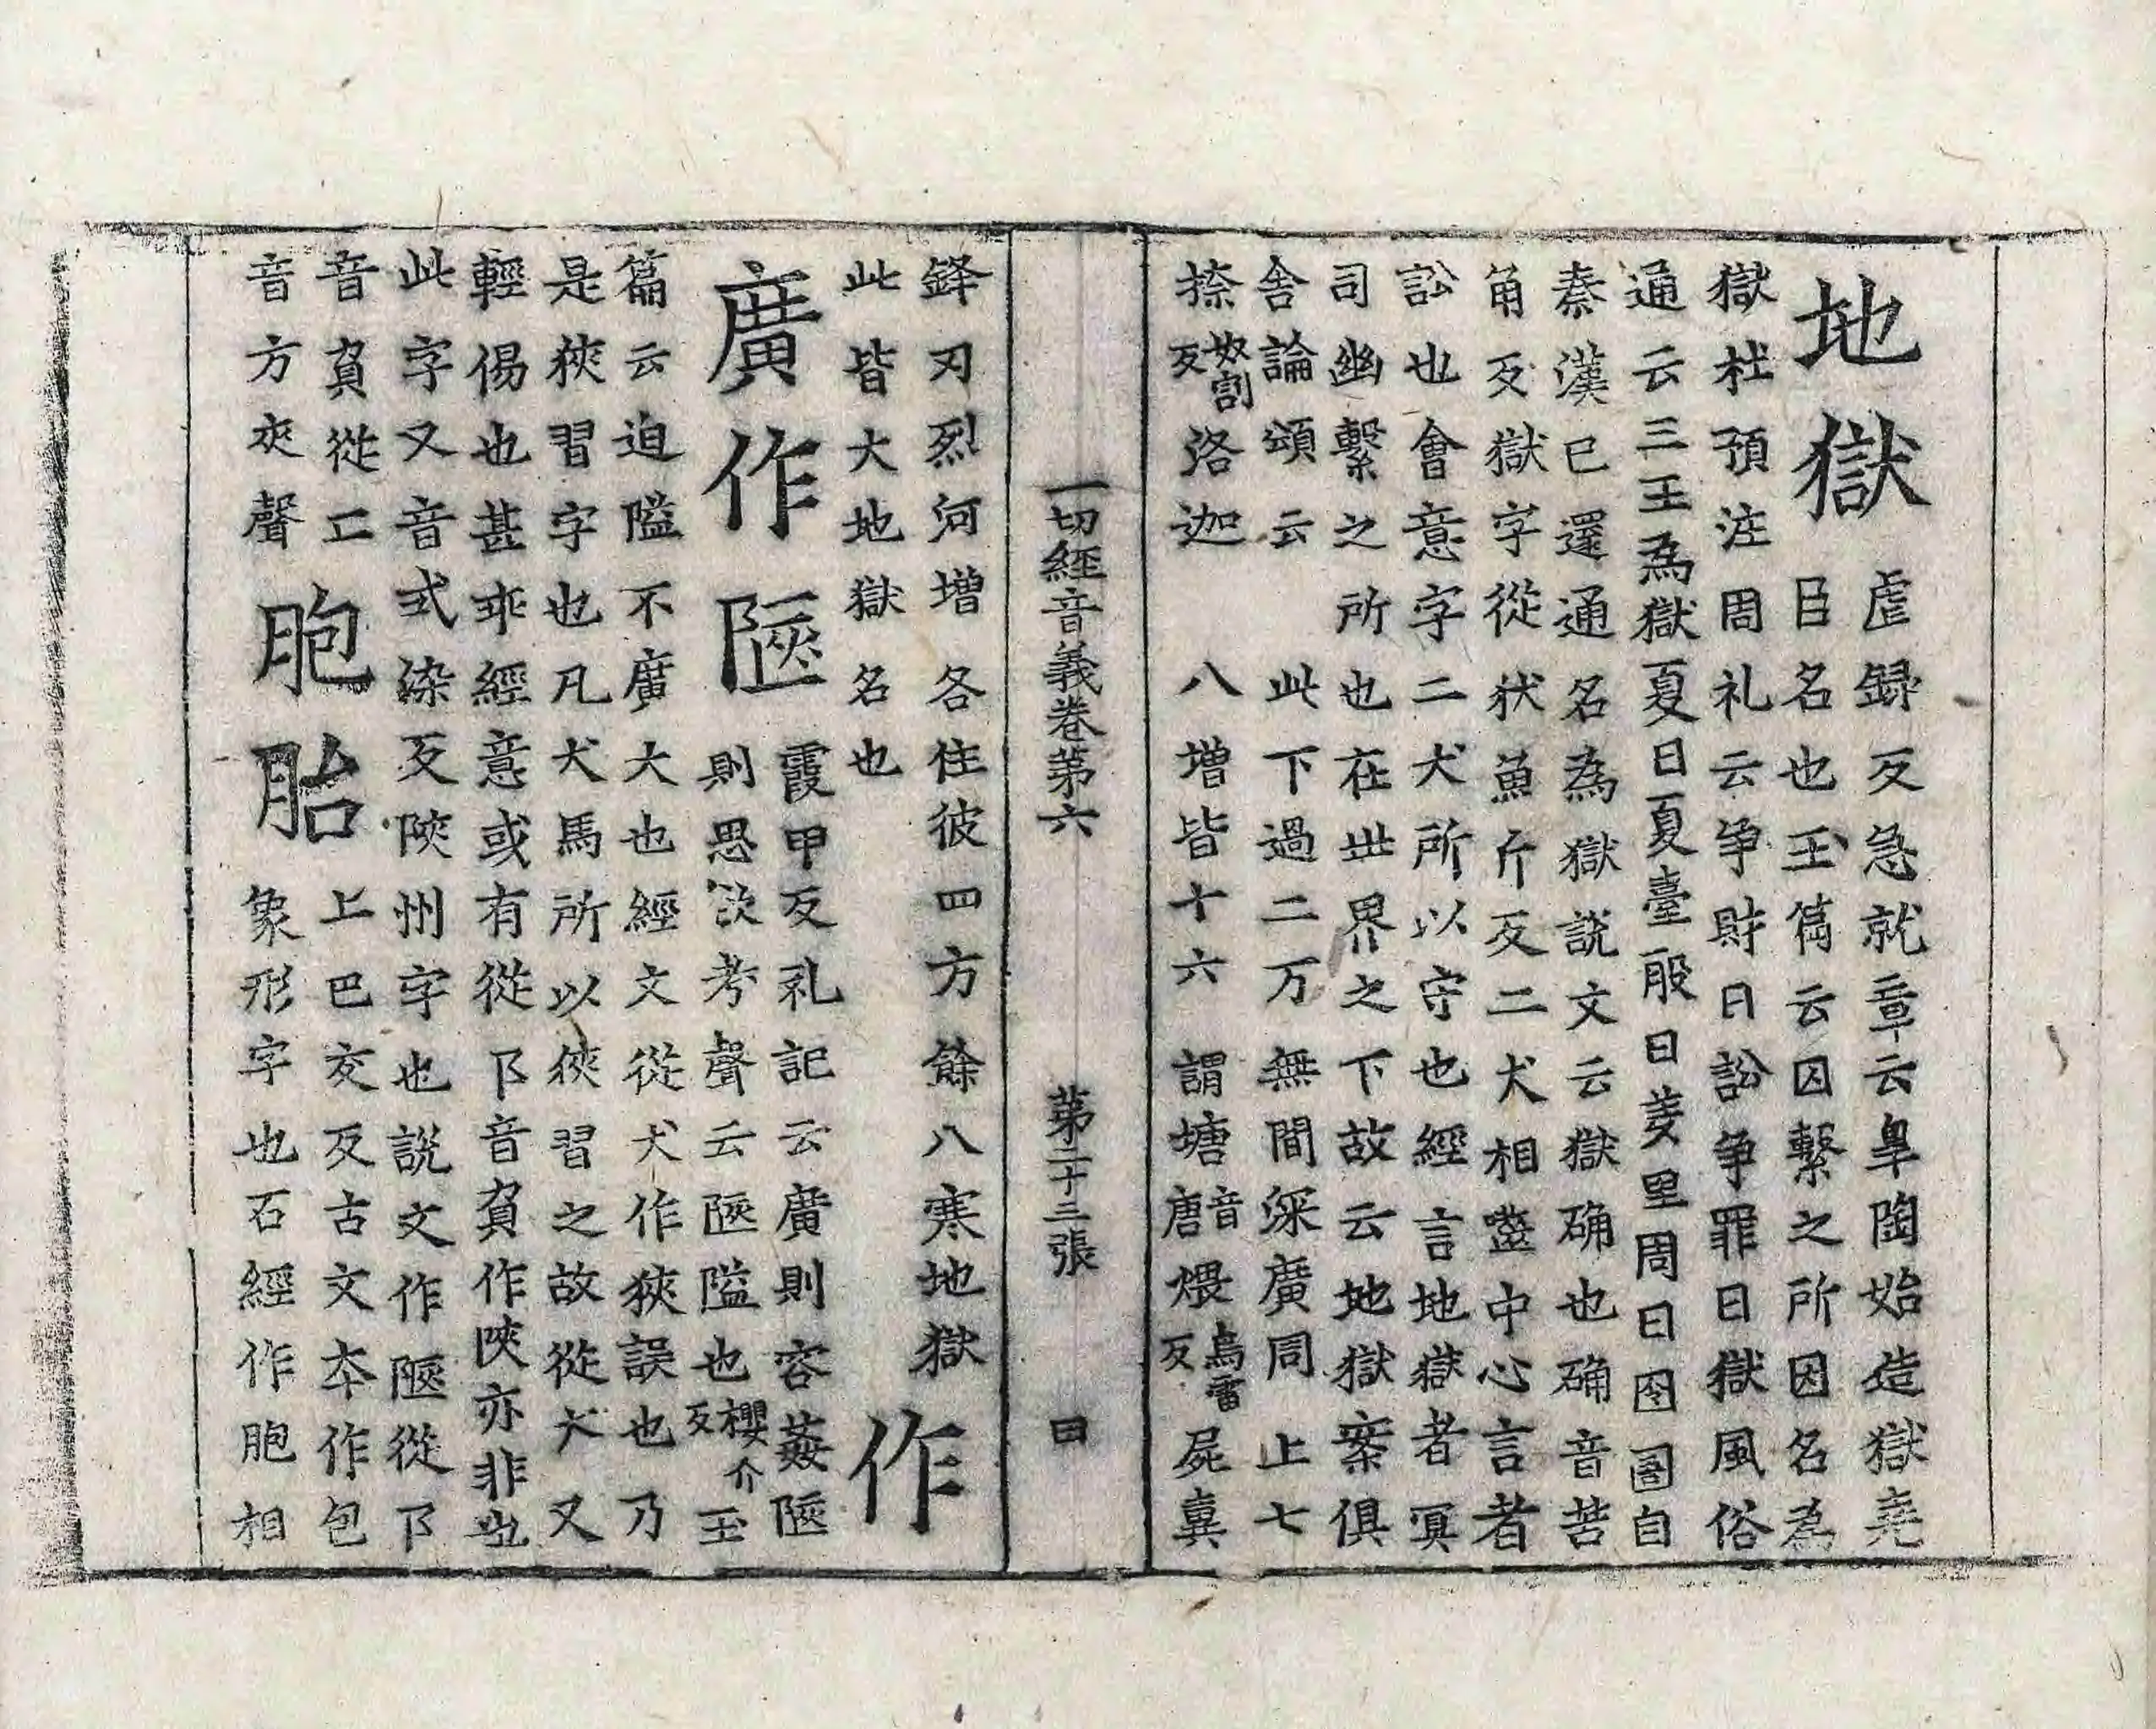 地獄虐録反急就章云皐陶始造獄堯
臣名也玉篇云囚繫之所因名為
獄杜預注周礼云争財曰訟争罪曰獄風俗
通云三王為獄夏曰夏臺殷曰羑里周曰囹圄自
秦漢已還通名為獄說文云獄确也确音苦
角反獄字從㹜魚斤反二犬相齧中心言者
訟也會意字二犬所以守也經言地獄者冥
司幽繫之所也在此界之下故云地獄案俱
舍論頌云　此下過二万　無間深廣同　上七
捺奴割反洛迦　八增皆十六　謂塘音唐煨烏雷反屍糞
一切經音義卷第六　第二十三張　曰
鋒刃烈河增　各住彼四方　餘八寒地獄
此皆大地獄名也　作
廣作陿霞甲反礼記云廣則容姦陿
則思欲考聲云陿隘也櫻介反玉
篇云迫隘不廣大也經文從犬作狹誤也乃
是狹習字也凡犬馬所以狹習之故從犬又
輕傷也甚乖經意或有從阝音負作陝亦非也
此字又音式染反陝州字也說文作陿從阝
音負從匚音方夾聲
胞胎上巴交反古文本作包
象形字也石經作胞相